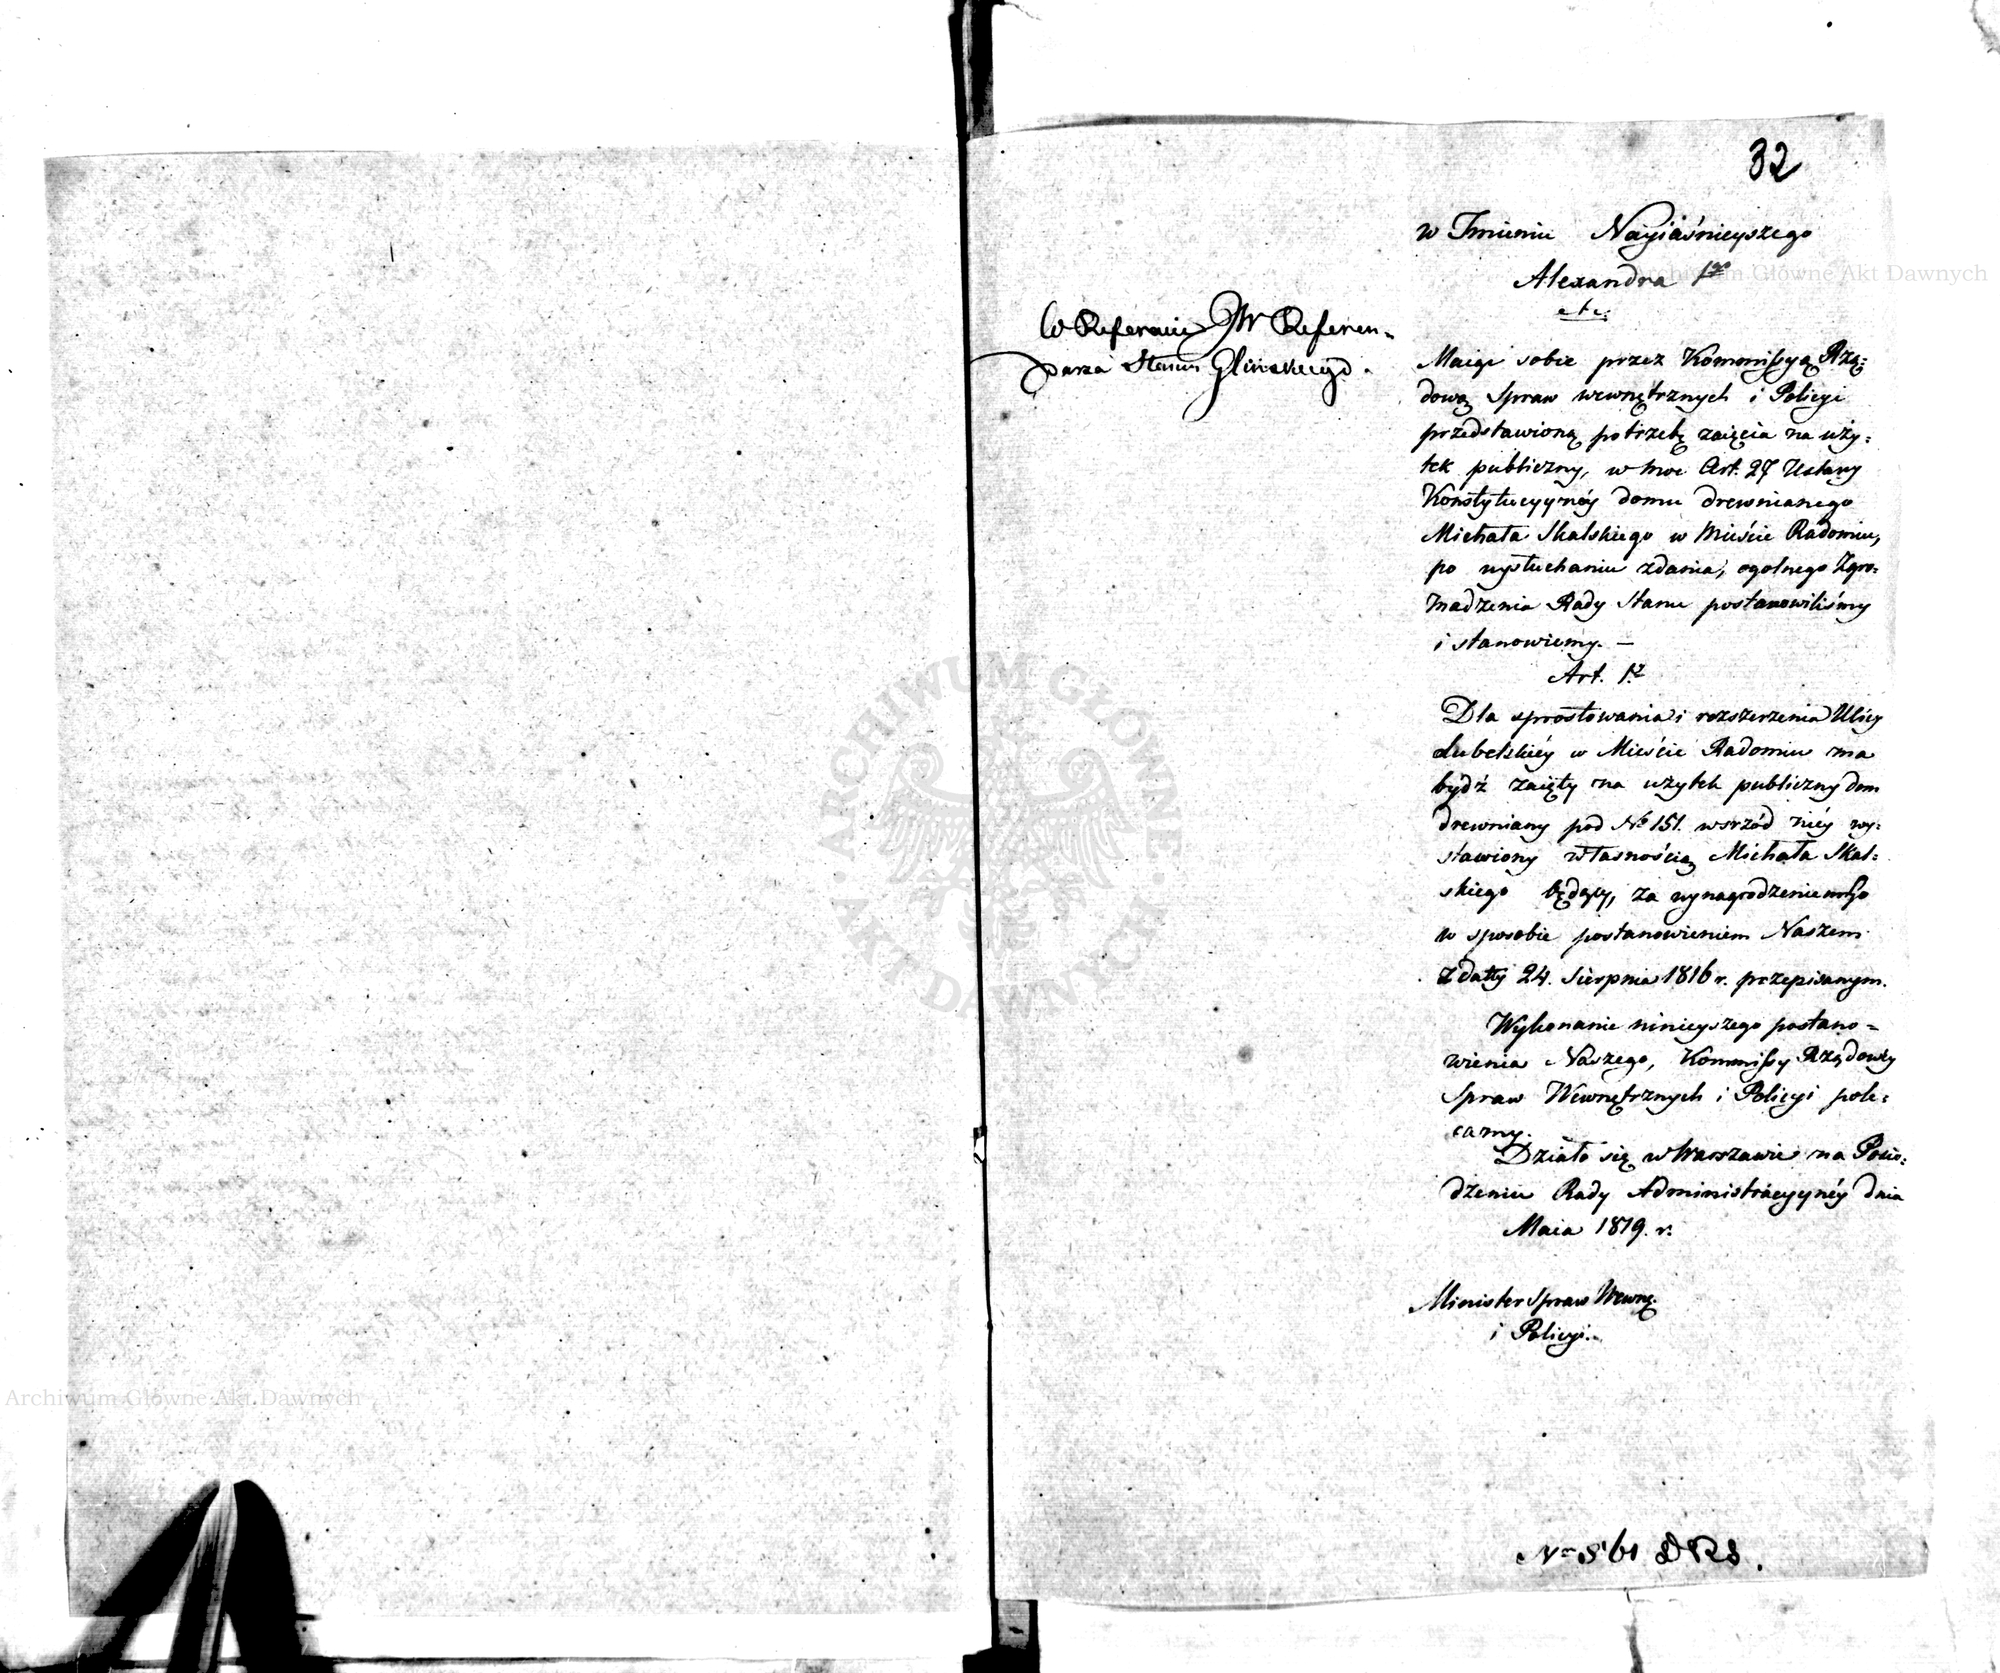 32
w Imieniu Nayiaśnieyszego
Alexandra Igo
etc.
W Referacie JW Referen-
darza Stanu Glinskiego.
Maiąc sobie przez Kommissyą Rzą-
dową Spraw wewnętrznych i Policyi
przedstawioną potrzebę zaięcia na uży-
tek publiczny, w moc Art. 27 Ustawy
Konstytucyynéy domu drewnianego
Michała Skalskiego w Mieście Radomiu,
po wysłuchaniu zdania, ogolnego Zgro-
madzenia Rady Stanu postanowiliśmy
i stanowiemy. —
Art. 1.
Dla sprostowania i rozszerzenia Ulicy
Lubelskiéy w Mieście Radomiu ma
bydź zaięty na użytek publiczny dom
drewniany pod No 151. wsrzód niéy wy-
stawiony własnością Michała Skal-
skiego będący, za wynagrodzeniem go
w sposobie postanowieniem Naszem
z daty 24. Sierpnia 1816 r. przepisanym.
Wykonanie ninieyszego postano-
wienia Naszego, Kommissy Rządowéy
Spraw Wewnętrznych i Policyi pole-
camy.
Działo się w Warszawie na Posie-
dzeniu Rady Administracyynéy dnia
Maia 1819. r.
Minister Spraw Wewnę.
i Policyi.
Archiwum Główne Akt Dawnych
ARCHIWUM GŁÓWNE AKT DAWNYCH
Archiwum Główne Akt Dawnych